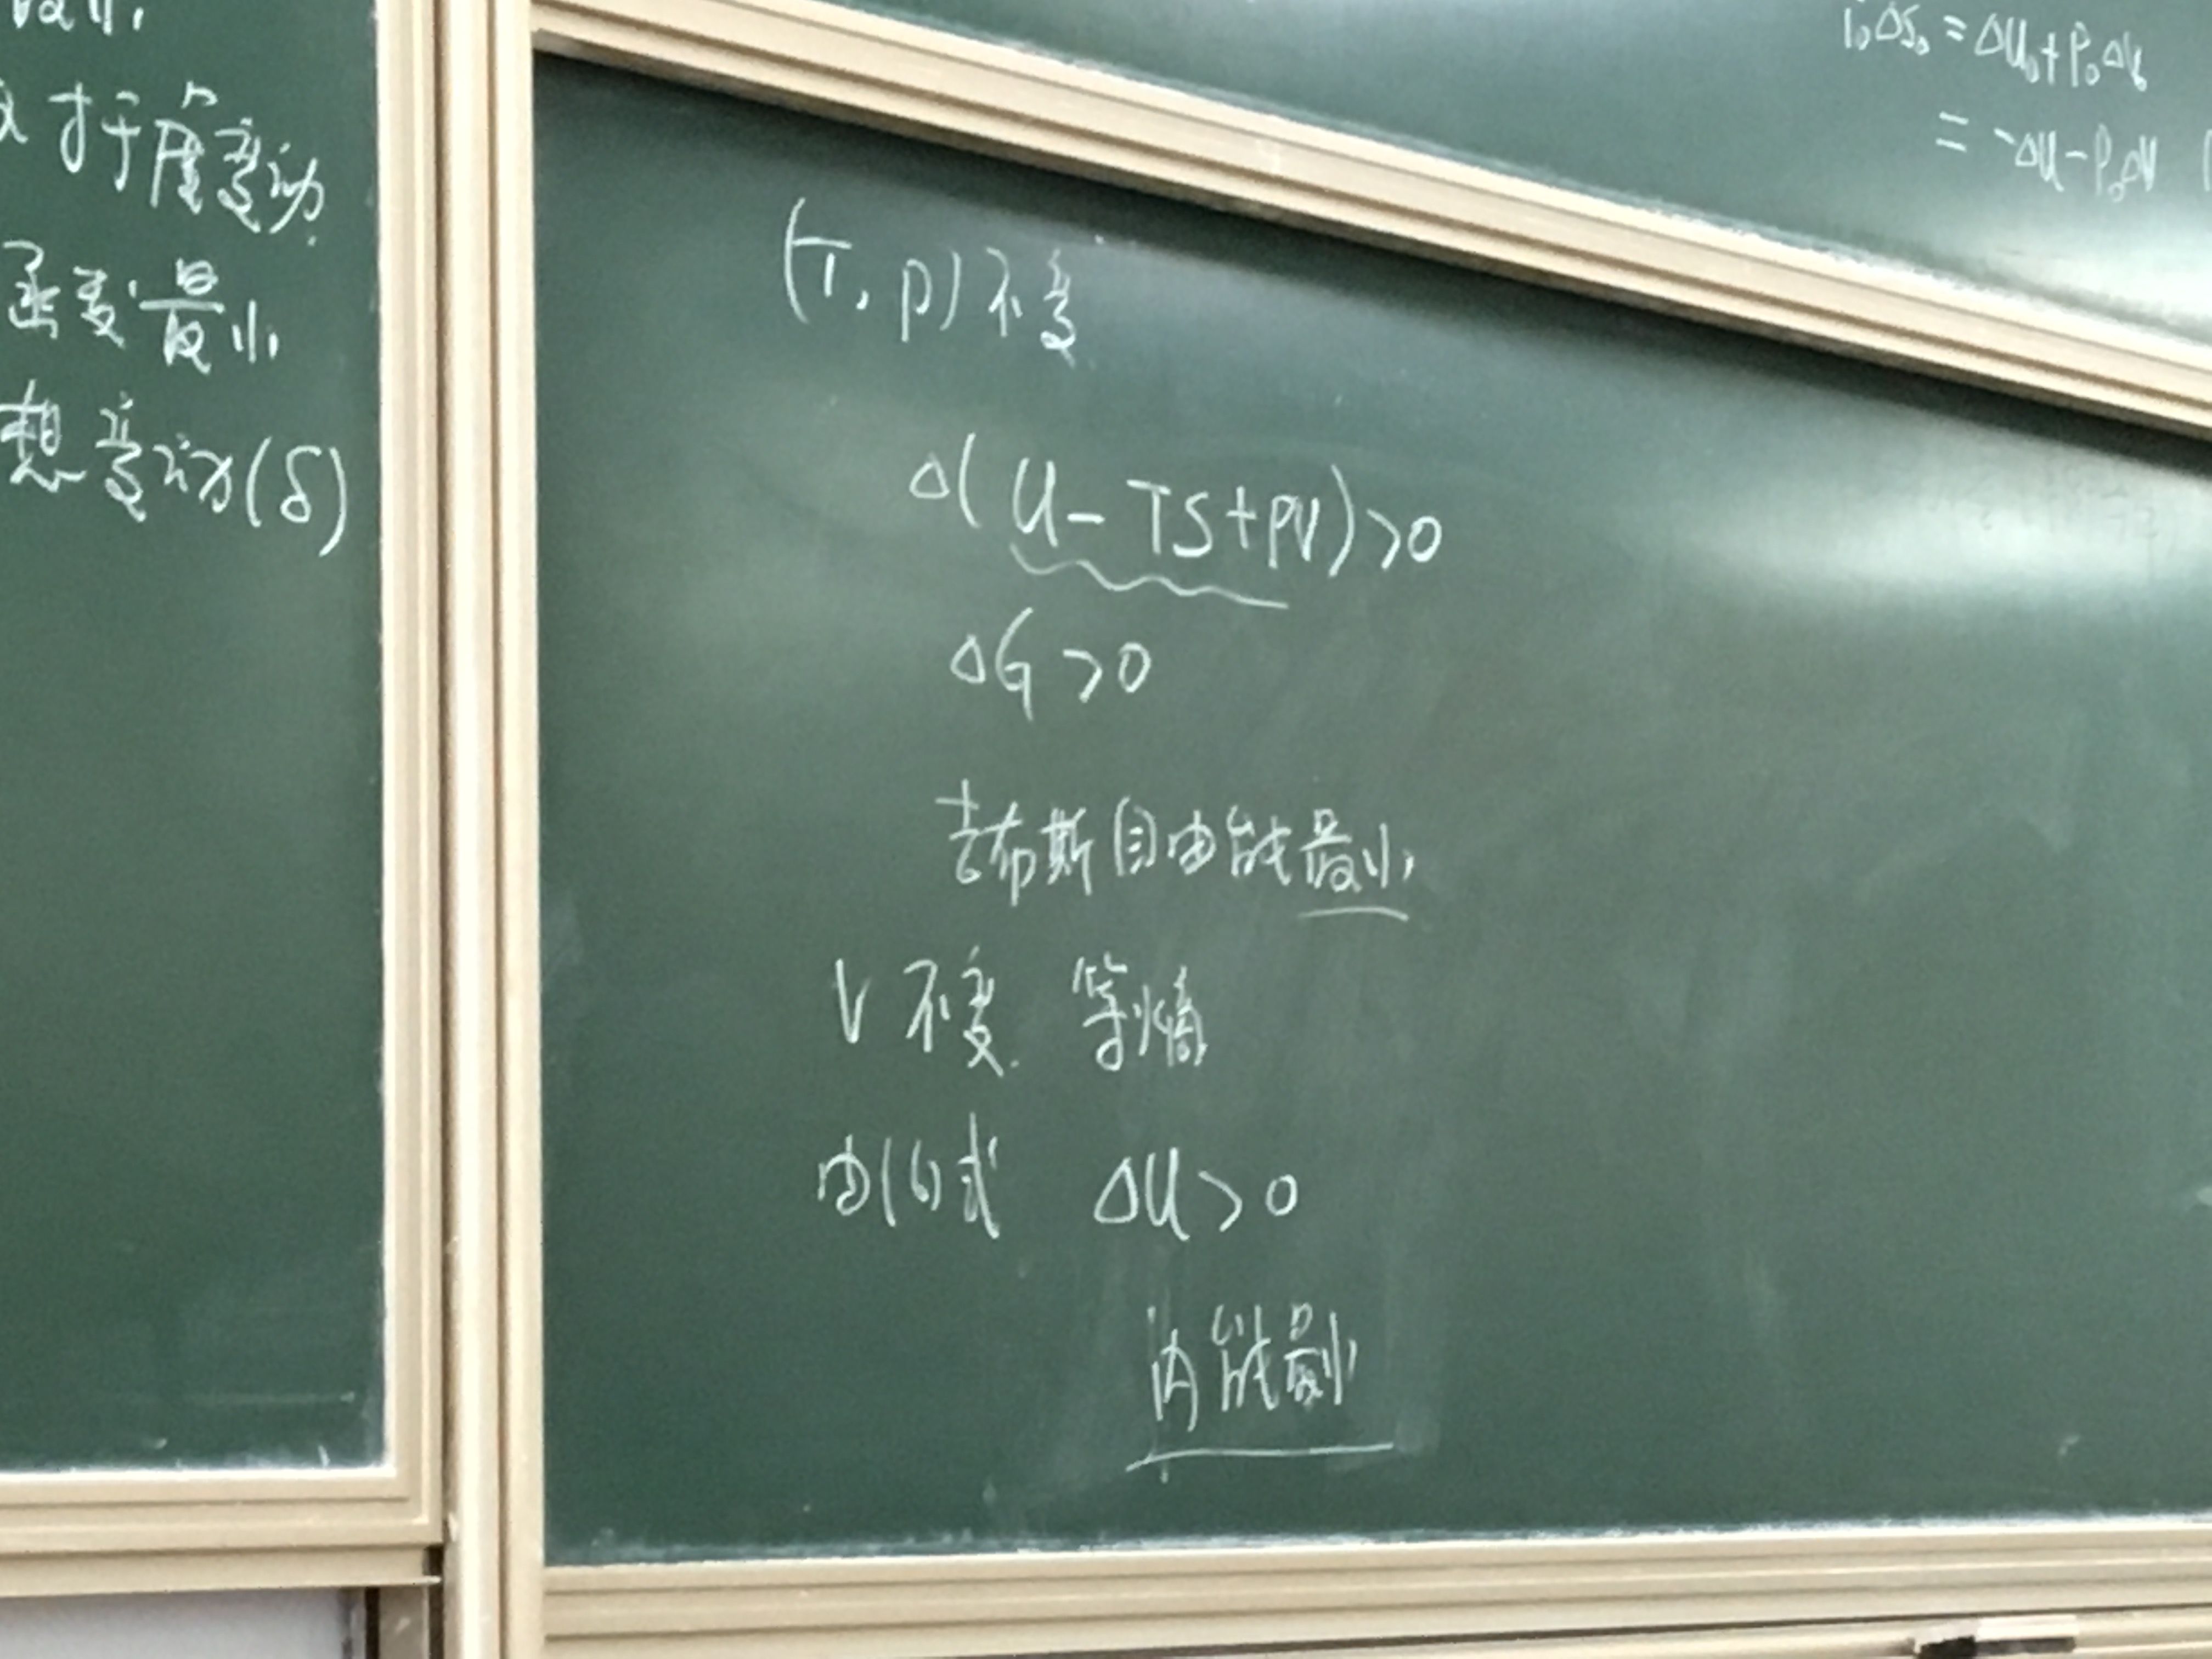 对于虚变动
函数最小
想变动(δ)
T₀ΔS₀ = ΔU₀+P₀ΔV₀
= -ΔU-P₀ΔV
(T, p) 不变
Δ(U-TS+PV)>0
ΔG>0
吉布斯自由能最小
V 不变. 等熵
由(6)式 ΔU>0
内能最小